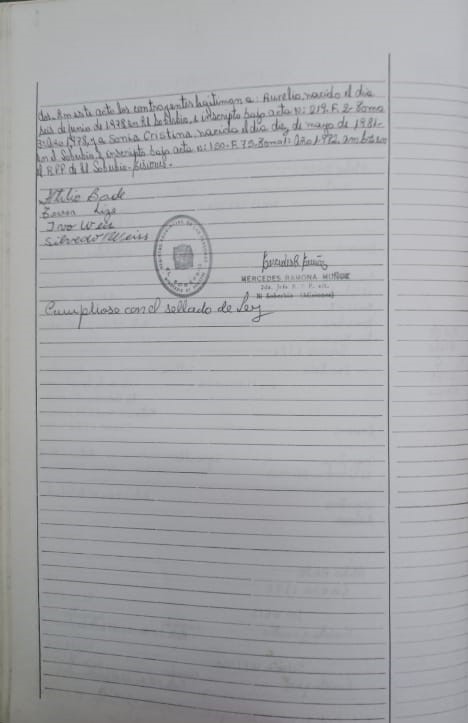 dos.- En este acto los contrayentes legitiman a: Aurelio, nacido el día
seis de junio de 1978 en El Soberbio, e inscripto bajo acta n: 219. F. 2- Tomo
3: Año 1978, y a Sonia Cristina, nacida el día diez de mayo de 1981-
en El Soberbio, inscripto bajo acta n: 100- F. 75- Tomo 1: Año 1.982, ambos en
el RPP. de El Soberbio- Misiones.-
Atilio Bade
Lize
Ivo Weis
Silvedo Weiss
MERCEDES RAMONA MUÑOZ
2da. Jefe R. P.
El Soberbio (Misiones)
Cumpliose con el sellado de Ley